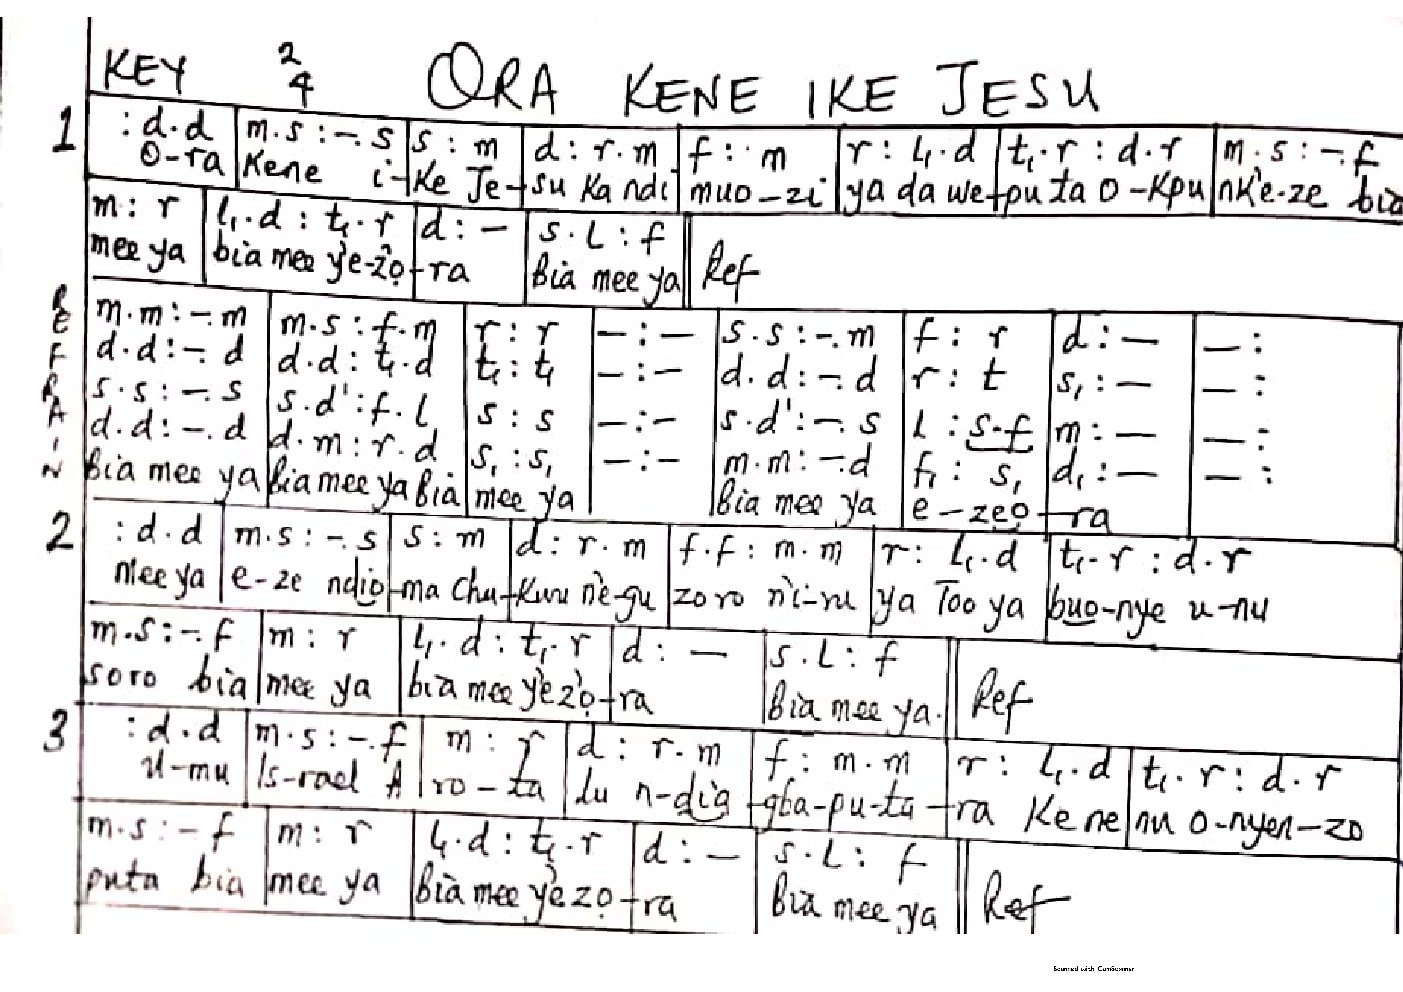 KEY 2/4 ORA KENE IKE JESU
1 :d.d | m.s:-.s | s:m | d:r.m | f:m | r:l₁.d | t₁.r:d.r | m.s:-.f
O-ra | Kene i-|Ke Je-|su Ka ndi | muo-zi | ya da we-|pu ta O-Kpu | nk'e-ze bia
m:r | l₁.d:t₁.r | d:- | s.L:f ||
mee ya | bia mee y'e-zọ-|ra | Bia mee ya || Ref
REFRAIN
m.m:-.m | m.s:f.m | r:r | -:- | s.s:-.m | f:r | d:- | -:
d.d:-.d | d.d:t₁.d | t₁:t₁ | -:- | d.d:-.d | r:t | s₁:- | -:
s.s:-.s | s.d':f.l | s:s | -:- | s.d':-.s | L:s-f | m:- | -:
d.d:-.d | d.m:r.d | s₁:s₁ | -:- | m.m:-.d | f₁:s₁ | d₁:- | -:
Bia mee ya | Bia mee ya Bia | mee ya | | Bia mee ya | e-zeọ-|ra
2 :d.d | m.s:-.s | s:m | d:r.m | f.f:m.m | r:l₁.d | t₁.r:d.r
Mee ya | e-ze ndio-|ma Chu-|Kwu n'e-gu | zoro n'i-ru | ya Too ya | buo-nye u-nu
m.s:-.f | m:r | l₁.d:t₁.r | d:- | s.L:f ||
soro bia | mee ya | bia mee y'ezọ-|ra | Bia mee ya. || Ref
3 :d.d | m.s:-.f | m:r | d:r.m | f:m.m | r:l₁.d | t₁.r:d.r
U-mu | Is-rael A | ro-ta | lu n-dia | -gba-pu-ta-|ra Kene | nu o-nyen-zo
m.s:-f | m:r | l₁.d:t₁.r | d:- | s.L:f ||
puta bia | mee ya | Bia mee y'ezọ-|ra | Bia mee ya || Ref
Scanned with CamScanner